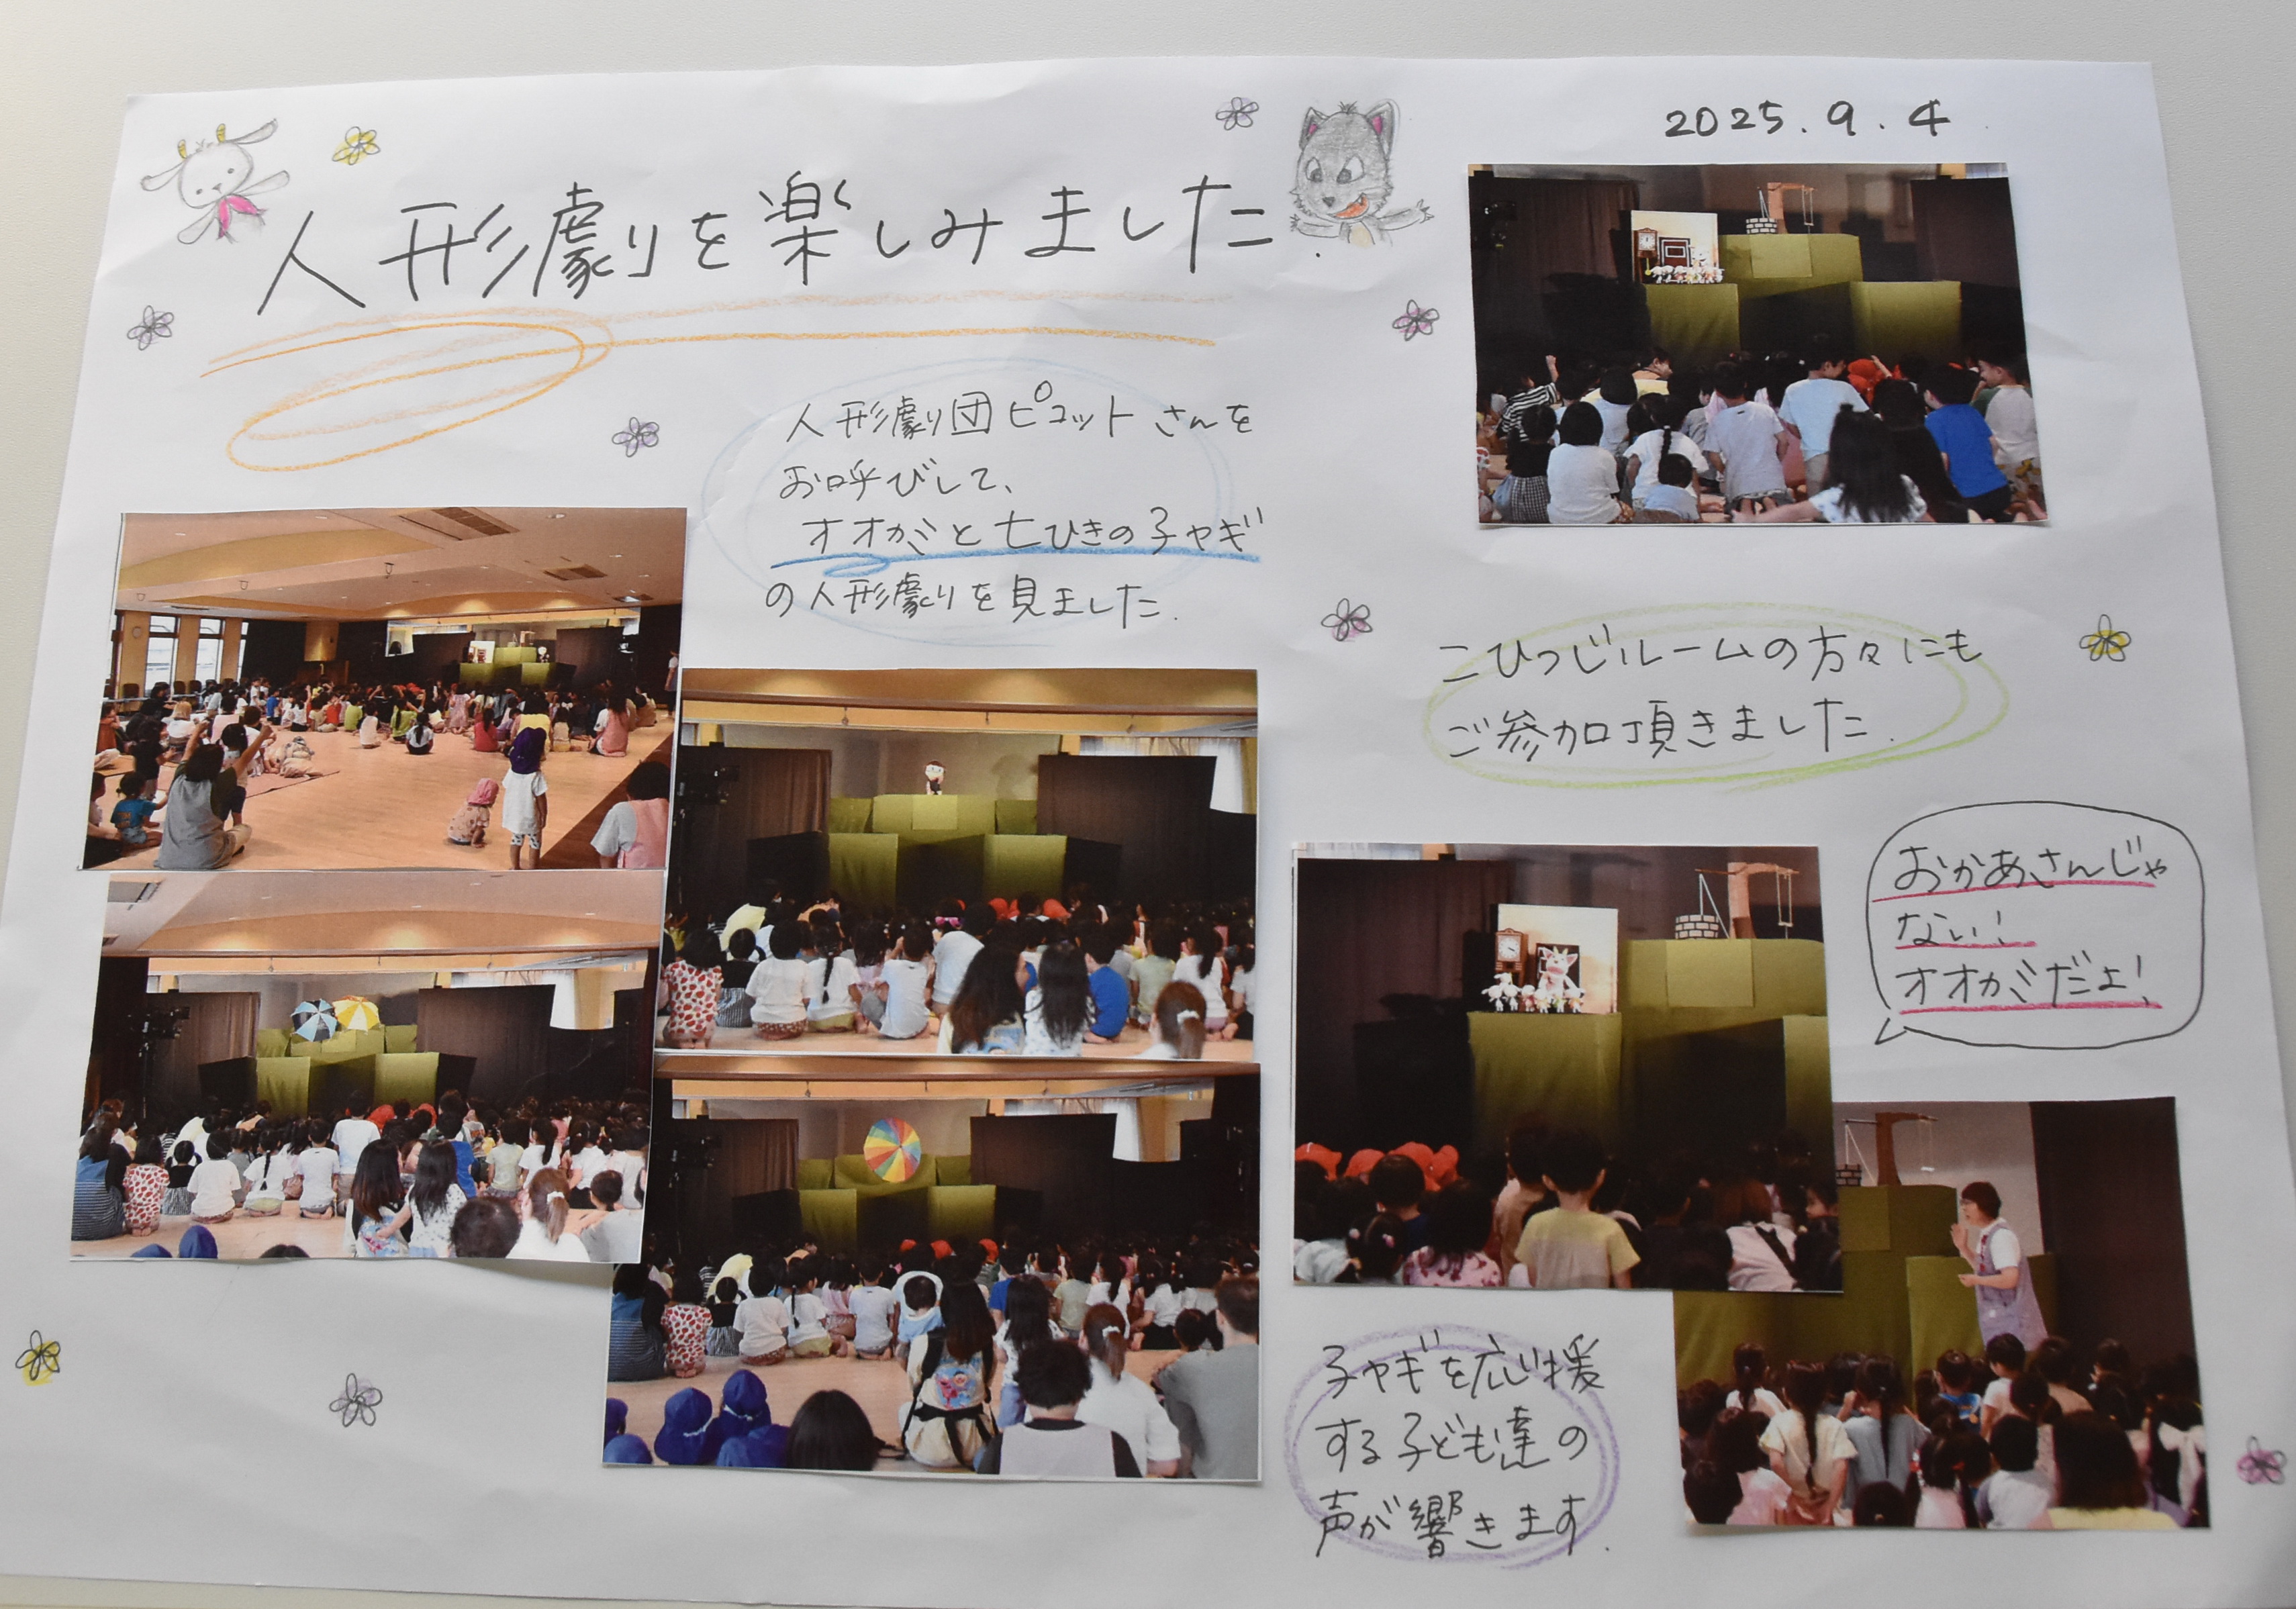 2025.9.4
人形劇を楽しみました.
人形劇団ピコットさんを
お呼びして、
オオカミと七ひきの子ヤギ
の人形劇を見ました.
こひつじルームの方々にも
ご参加頂きました.
おかあさんじゃ
ない!
オオカミだよ!
子ヤギを応援
する子ども達の
声が響きます.